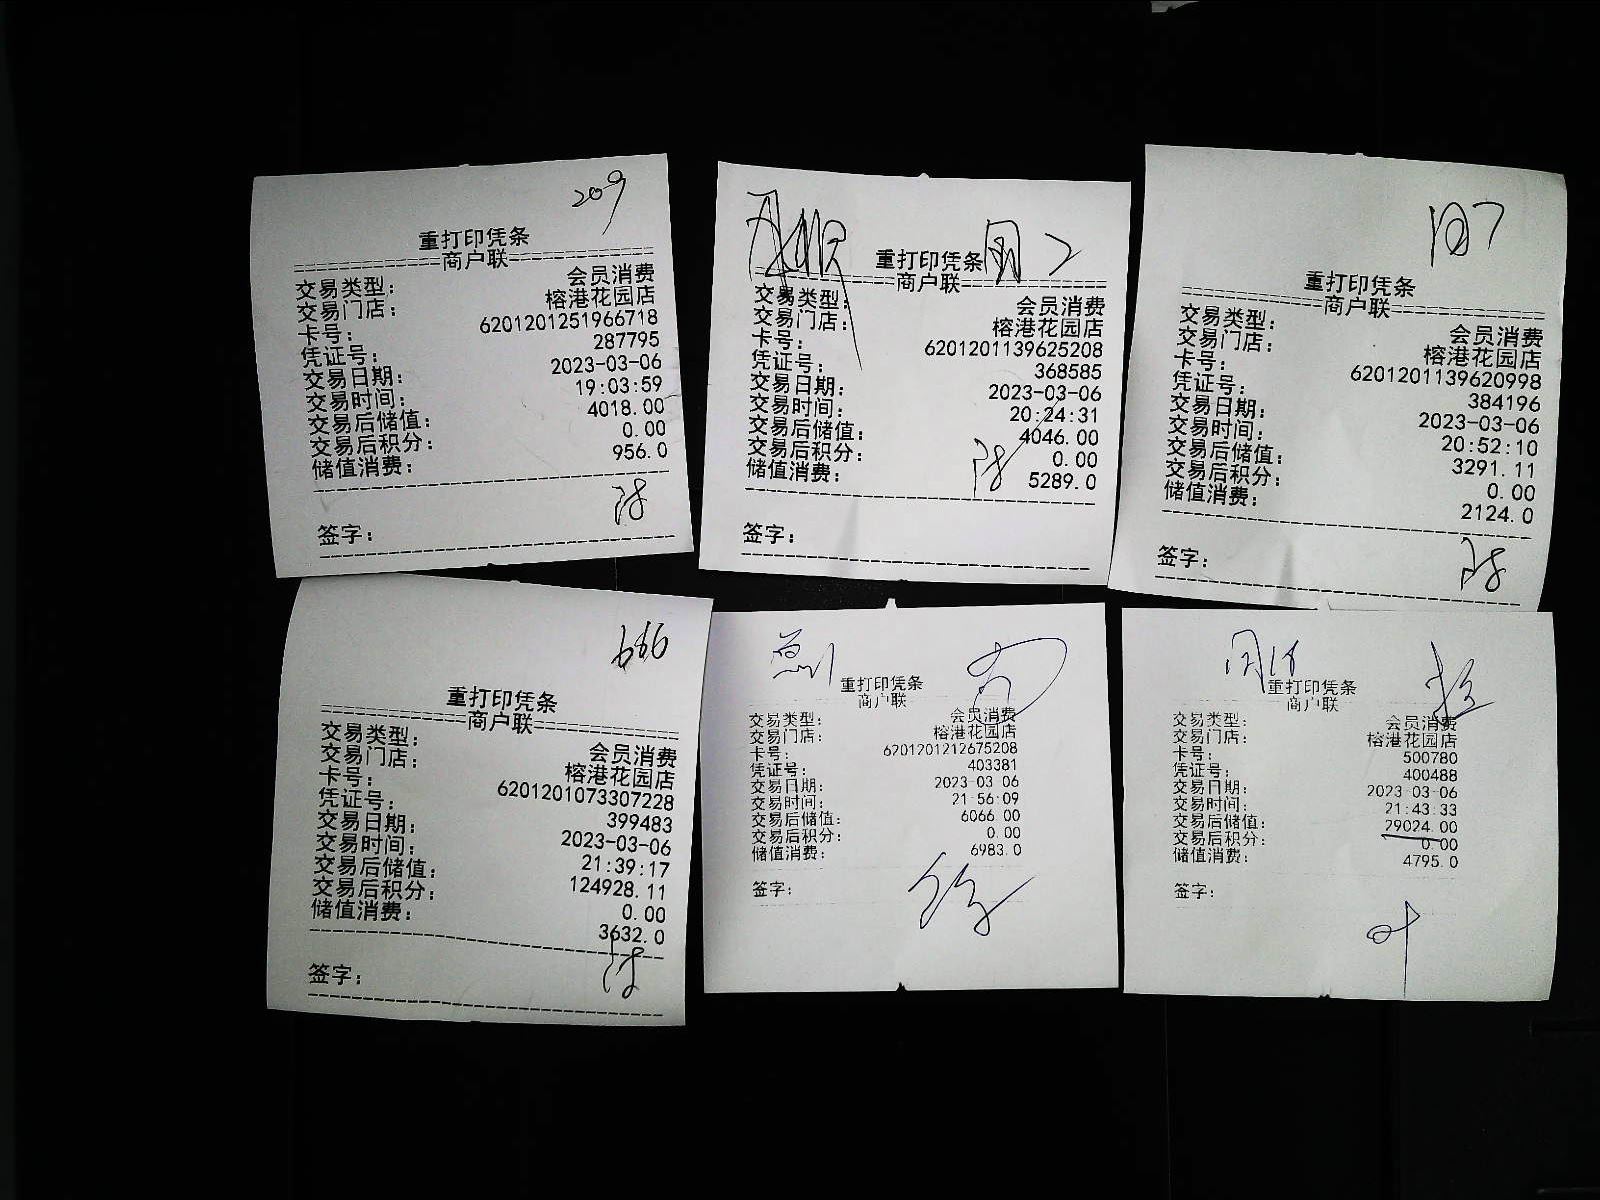 209
重打印凭条
商户联
交易类型： 会员消费
交易门店： 榕港花园店
卡号： 6201201251966718
凭证号： 287795
交易日期： 2023-03-06
交易时间： 19:03:59
交易后储值： 4018.00
交易后积分： 0.00
储值消费： 956.0
签字：
重打印凭条
商户联
交易类型： 会员消费
交易门店： 榕港花园店
卡号： 6201201139625208
凭证号： 368585
交易日期： 2023-03-06
交易时间： 20:24:31
交易后储值： 4046.00
交易后积分： 0.00
储值消费： 5289.0
签字：
重打印凭条
商户联
交易类型： 会员消费
交易门店： 榕港花园店
卡号： 6201201139620998
凭证号： 384196
交易日期： 2023-03-06
交易时间： 20:52:10
交易后储值： 3291.11
交易后积分： 0.00
储值消费： 2124.0
签字：
666
重打印凭条
商户联
交易类型： 会员消费
交易门店： 榕港花园店
卡号： 6201201073307228
凭证号： 399483
交易日期： 2023-03-06
交易时间： 21:39:17
交易后储值： 124928.11
交易后积分： 0.00
储值消费： 3632.0
签字：
重打印凭条
商户联
交易类型： 会员消费
交易门店： 榕港花园店
卡号： 6201201212675208
凭证号： 403381
交易日期： 2023-03-06
交易时间： 21:56:09
交易后储值： 6066.00
交易后积分： 0.00
储值消费： 6983.0
签字：
重打印凭条
商户联
交易类型： 会员消费
交易门店： 榕港花园店
卡号： 500780
凭证号： 400488
交易日期： 2023-03-06
交易时间： 21:43:33
交易后储值： 29024.00
交易后积分： 0.00
储值消费： 4795.0
签字：
叶